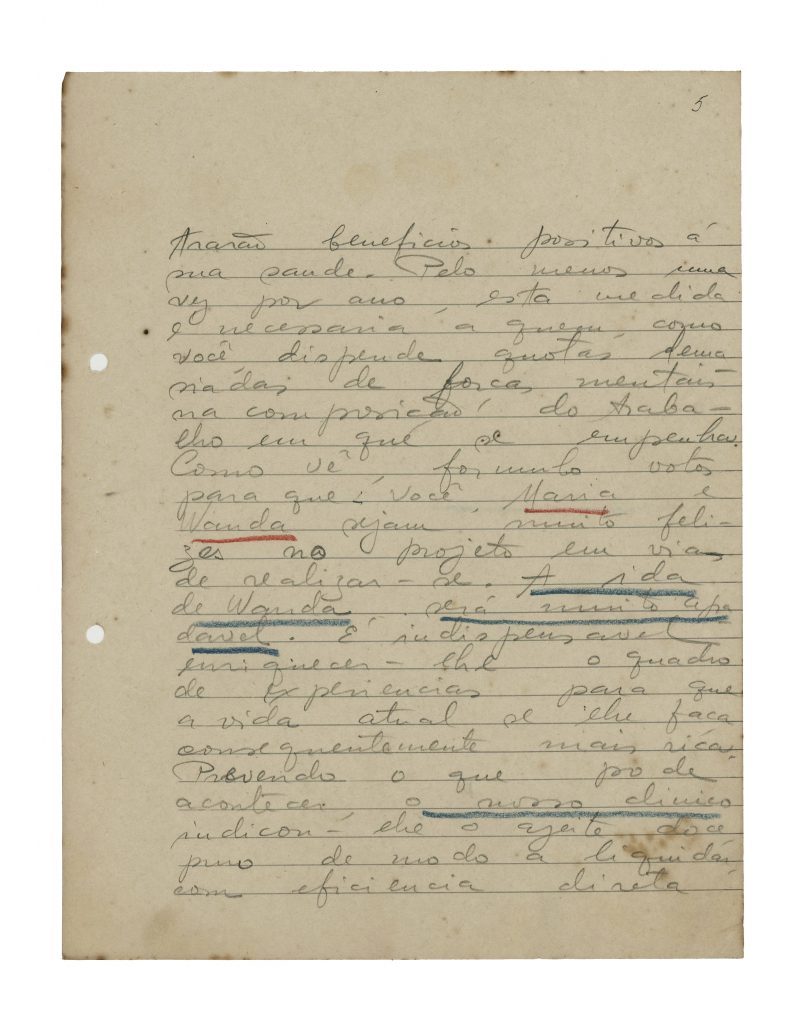 5
trarão beneficios positivos á
sua saude. Pelo menos uma
vez por ano, esta medida
é necessaria a quem, como
você dispende quotas dema
siadas de forças mentais
na composição do traba-
lho em que se empenha.
Como vê, formulo votos
para que você Maria e
Wanda sejam muito feli-
zes no projeto em vias
de realizar-se. A ida
de Wanda será muito
É indispensavel
enriquecer-lhe o quadro
de experiencias para que
a vida atual se lhe faça
consequentemente mais rica.
Prevendo o que pode
acontecer, o nosso clinico
indicou-lhe o
de modo a liquidar
com eficiencia direta